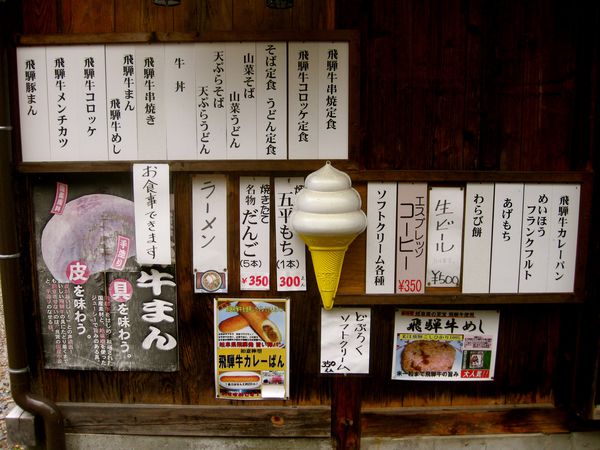 飛騨牛串焼定食
飛騨牛コロッケ定食
そば定食 うどん定食
山菜そば
山菜うどん
天ぷらそば
天ぷらうどん
牛丼
飛騨牛串焼き
飛騨牛まん
飛騨牛めし
飛騨牛コロッケ
飛騨牛メンチカツ
飛騨豚まん
飛騨牛カレーパン
めいほう
フランクフルト
あげもち
わらび餅
生ビール
¥500
エスプレッソ
コーヒー
¥350
ソフトクリーム各種
五平もち
(1本)
300
焼きたて
名物
だんご
(5本)
¥350
ラーメン
お食事できます
牛まん
手造り
具を味わう。
皮を味わう
どぶろく
ソフトクリーム
350
飛騨牛カレーぱん
飛騨牛めし
米一粒まで飛騨牛の旨み
大人気!!